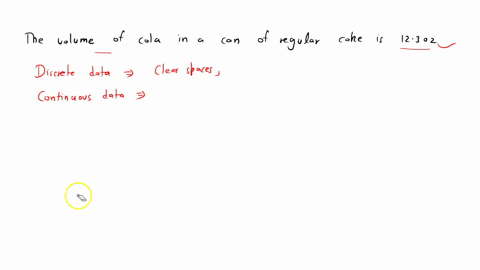 The volume of cola in a can of regular coke is 12.3 oz
Discrete data ⇒ Clear spaces,
Continuous data ⇒